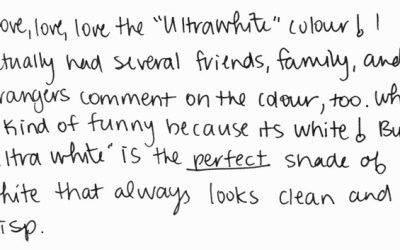 ove, love, love the "Ultrawhite" colour! I
tually had several friends, family, and
rangers comment on the colour, too. Wh
kind of funny because its white! Bu
ltra white" is the perfect shade of
hite that always looks clean and
isp.